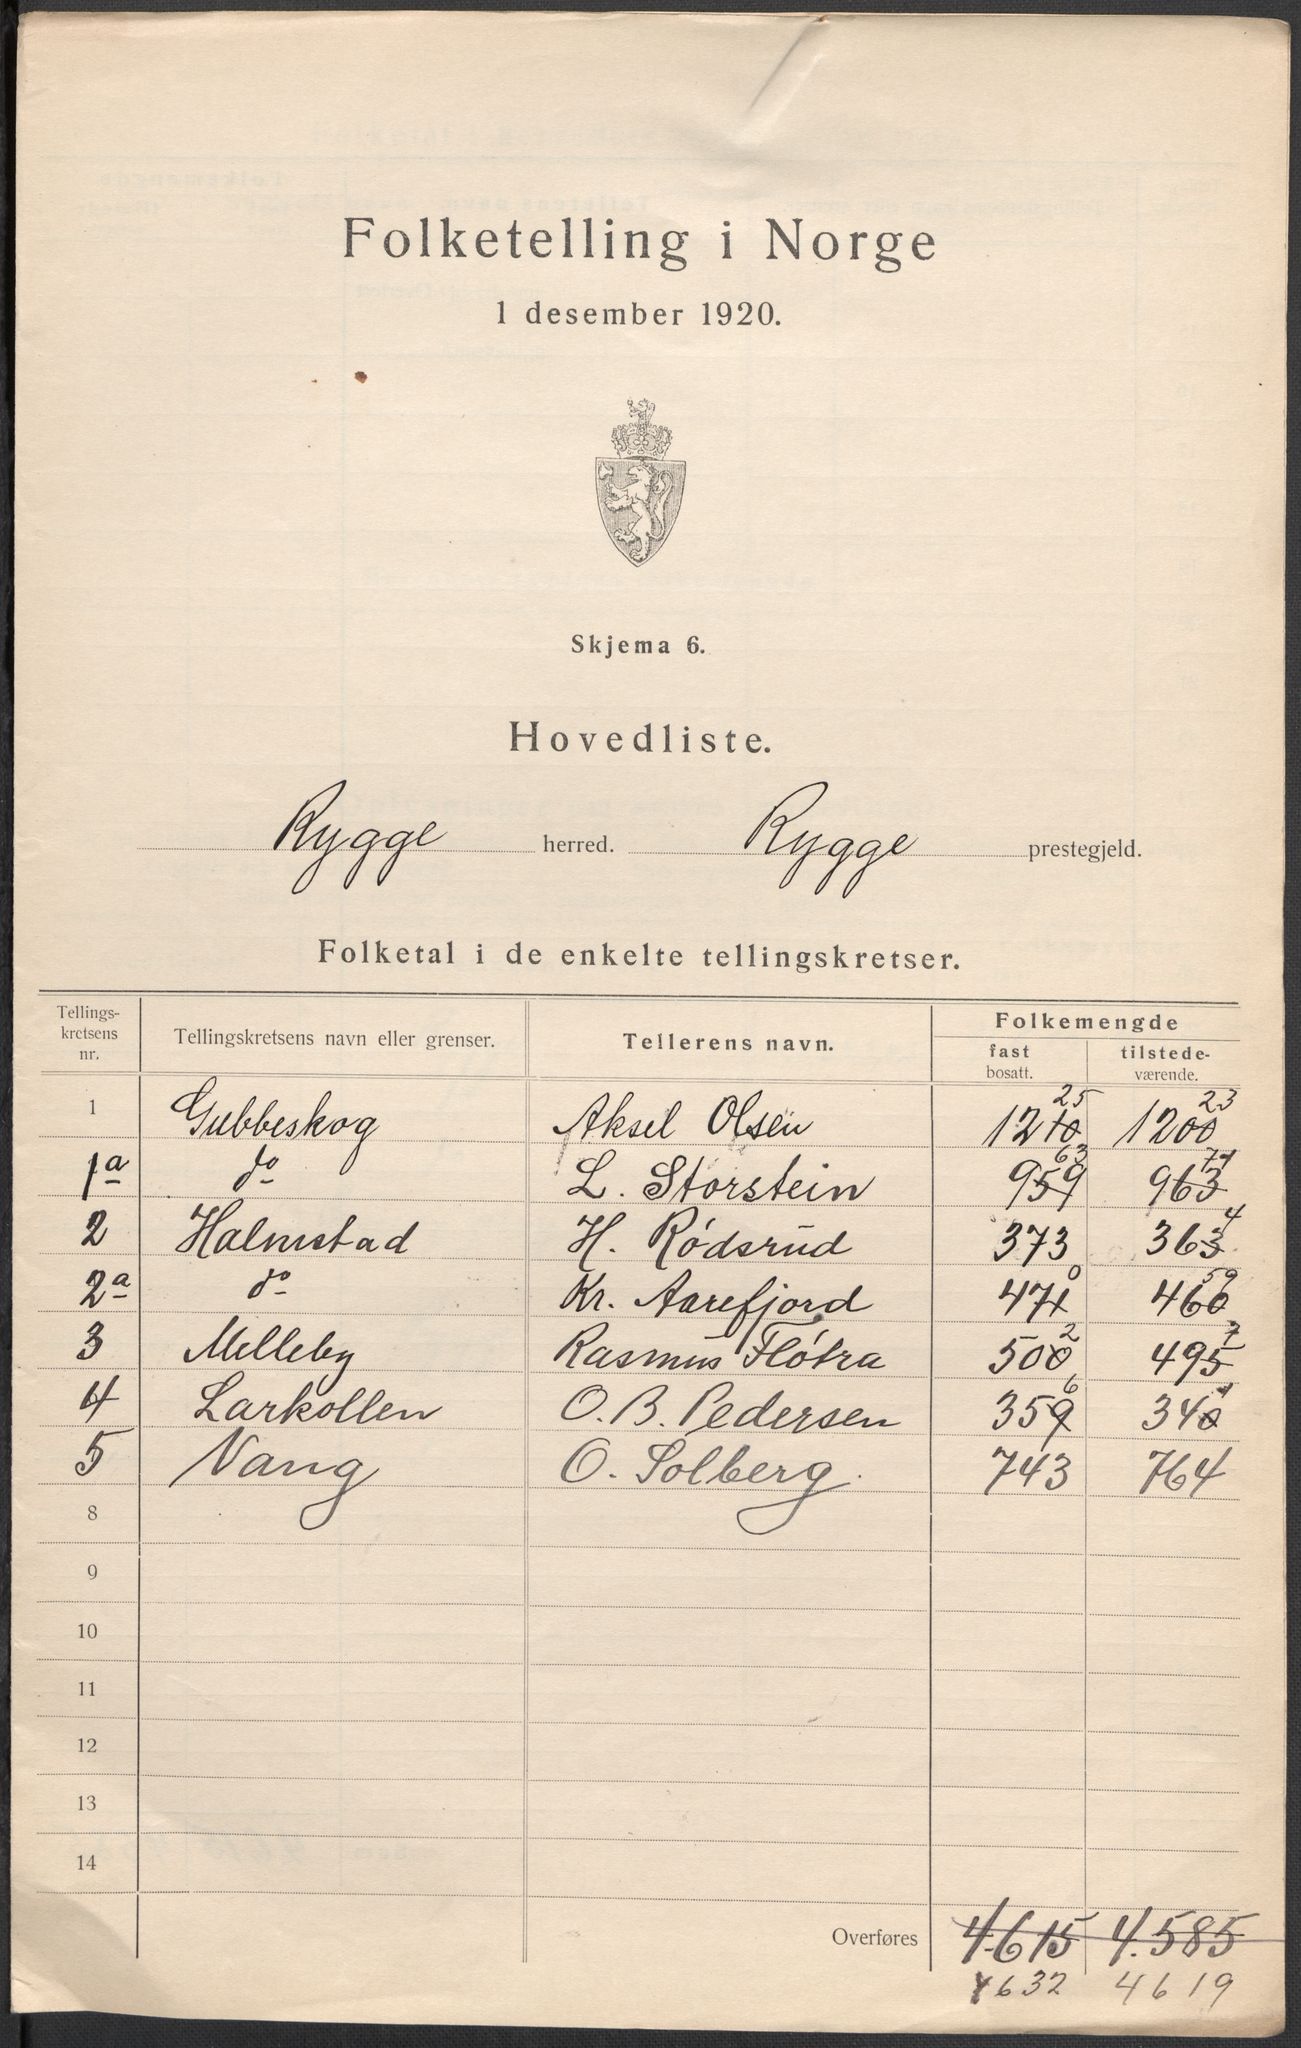 Folketelling i Norge
1 desember 1920.
Skjema 6.
Hovedliste.
Rygge herred. Rygge prestegjeld.
Folketal i de enkelte tellingskretser.
Tellings-kretsens nr. Tellingskretsens navn eller grenser. Tellerens navn. Folkemengde
fast bosatt. tilstede-værende.
25 23
1 Gubbeskog Aksel Olsen 1210 1200
63 71
1a do L. Storstein 959 963
4
2 Halmstad H. Rødsrud 373 363
0 59
2a do Kr. Aarefjord 471 460
2 7
3 Melleby Rasmus Flótra 500 495
6 1
4 Larkollen O. B. Pedersen 359 340
5 Vang O. Solberg. 743 764
8
9
10
11
12
13
14
Overføres 4615 4.585
4632 4619